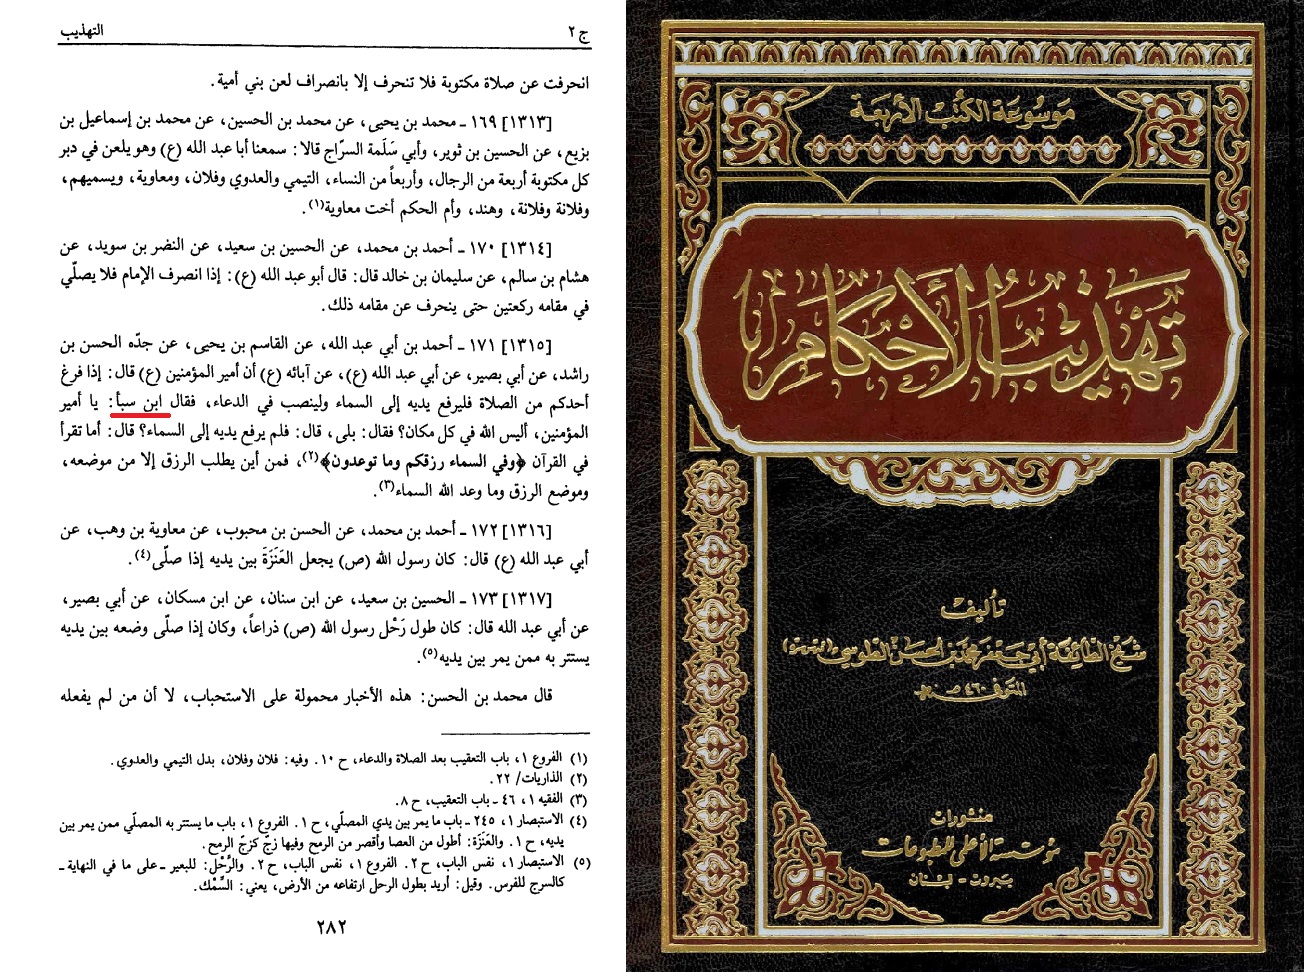 ج ٢
التهذيب
انحرفت عن صلاة مكتوبة فلا تنحرف إلا بانصراف لعن بني أمية.
[١٣١٣] ١٦٩ ـ محمد بن يحيى، عن محمد بن الحسين، عن محمد بن إسماعيل بن
بزيع، عن الحسين بن ثوير، وأبي سَلَمة السرّاج قالا: سمعنا أبا عبد الله (ع) وهو يلعن في دبر
كل مكتوبة أربعة من الرجال، وأربعاً من النساء، التيمي والعدوي وفلان، ومعاوية، ويسميهم،
وفلانة وفلانة، وهند، وأم الحكم أخت معاوية(١).
[١٣١٤] ١٧٠ ـ أحمد بن محمد، عن الحسين بن سعيد، عن النضر بن سويد، عن
هشام بن سالم، عن سليمان بن خالد قال: قال أبو عبد الله (ع): إذا انصرف الإمام فلا يصلّي
في مقامه ركعتين حتى ينحرف عن مقامه ذلك.
[١٣١٥] ١٧١ ـ أحمد بن أبي عبد الله، عن القاسم بن يحيى، عن جدّه الحسن بن
راشد، عن أبي بصير، عن أبي عبد الله (ع)، عن آبائه (ع) أن أمير المؤمنين (ع) قال: إذا فرغ
أحدكم من الصلاة فليرفع يديه إلى السماء ولينصب في الدعاء، فقال ابن سبأ: يا أمير
المؤمنين، أليس الله في كل مكان؟ فقال: بلى، قال: فلم يرفع يديه إلى السماء؟ قال: أما تقرأ
في القرآن ﴿وفي السماء رزقكم وما توعدون﴾(٢)، فمن أين يطلب الرزق إلا من موضعه،
وموضع الرزق وما وعد الله السماء(٣).
[١٣١٦] ١٧٢ ـ أحمد بن محمد، عن الحسن بن محبوب، عن معاوية بن وهب، عن
أبي عبد الله (ع) قال: كان رسول الله (ص) يجعل العَنَزَةَ بين يديه إذا صلّى(٤).
[١٣١٧] ١٧٣ ـ الحسين بن سعيد، عن ابن سنان، عن ابن مسكان، عن أبي بصير،
عن أبي عبد الله قال: كان طول رَحْل رسول الله (ص) ذراعاً، وكان إذا صلّى وضعه بين يديه
يستتر به ممن يمر بين يديه(٥).
قال محمد بن الحسن: هذه الأخبار محمولة على الاستحباب، لا أن من لم يفعله
(١) الفروع ١، باب التعقيب بعد الصلاة والدعاء، ح ١٠. وفيه: فلان وفلان، بدل التيمي والعدوي.
(٢) الذاريات/ ٢٢.
(٣) الفقيه ١، ٤٦ ـ باب التعقيب، ح ٨.
(٤) الاستبصار ١، ٢٤٥ ـ باب ما يمر بين يدي المصلّي، ح ١. الفروع ١، باب ما يستتر به المصلي ممن يمر بين
يديه، ح ١. والعَنَزَة: أطول من العصا وأقصر من الرمح وفيها زجّ كزجّ الرمح.
(٥) الاستبصار ١، نفس الباب، ح ٢. الفروع ١، نفس الباب، ح ٢. والرَّحْل: للبعير ـ على ما في النهاية ـ
كالسرج للفرس. وقيل: أريد بطول الرحل ارتفاعه من الأرض، يعني: السَّمْك.
٢٨٢
مَوسُوعَة الكُتُب الأرْبَعَة
تهذيب الأحكام
تأليف
شيخ الطائفة أبي جعفر محمد بن الحسن الطوسي
المتوفى ٤٦٠ هـ
منشورات
مؤسسة الأعلمي للمطبوعات
بيروت - لبنان